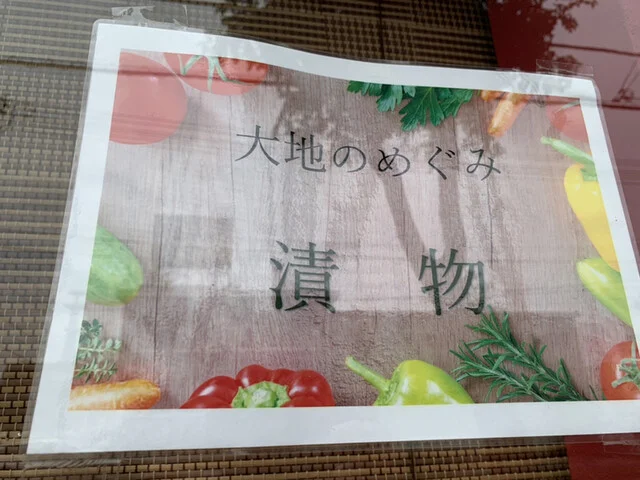 大地のめぐみ
漬 物